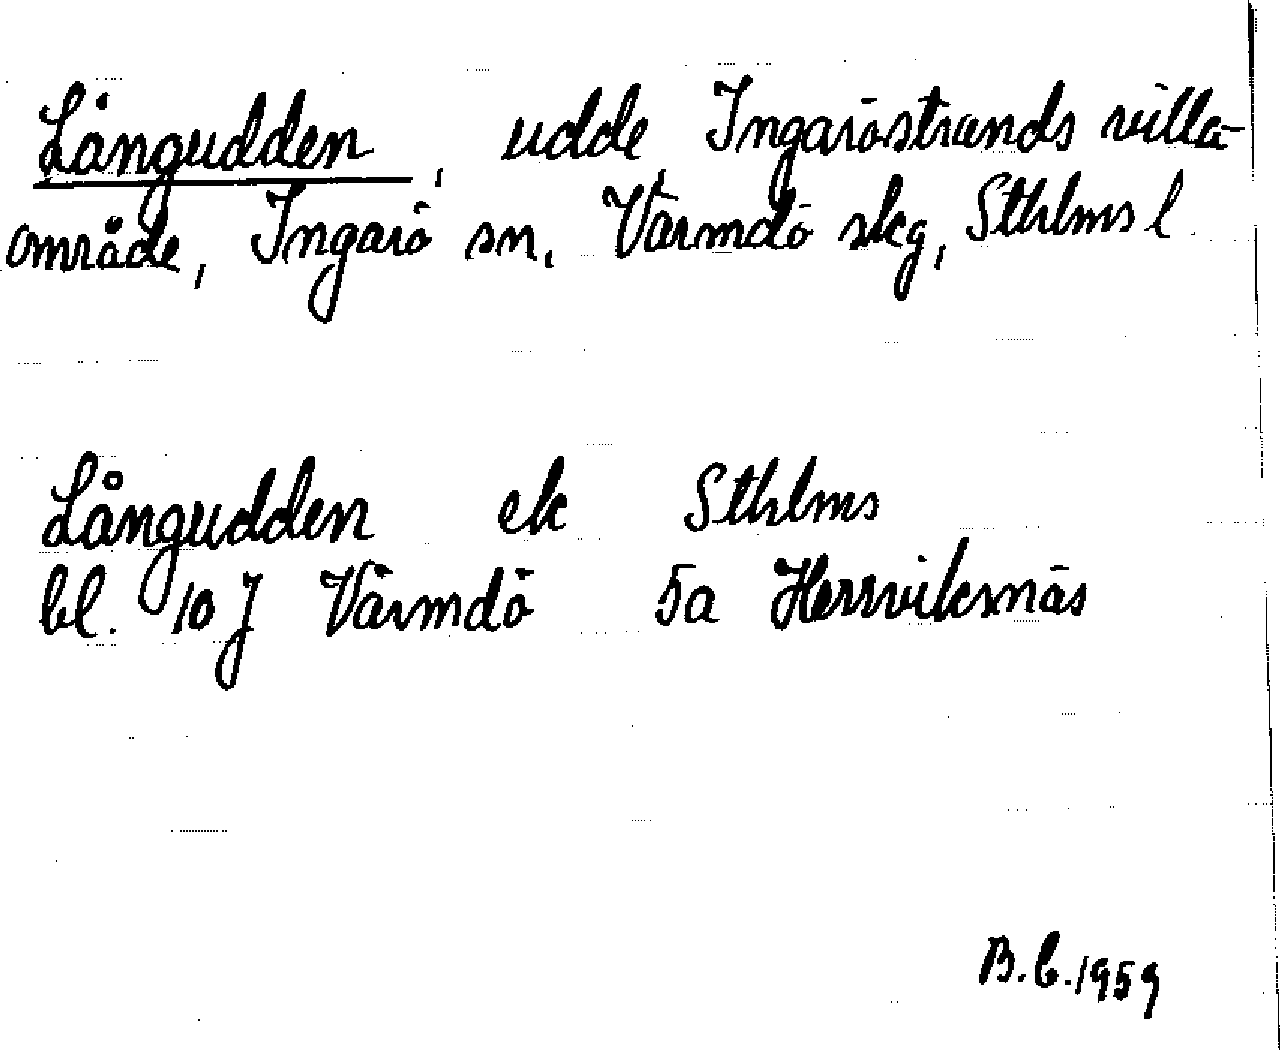 Långudden, udde, Ingaröstrands villa-
område, Ingarö sn, Värmdö skg, Sthlms l
Långudden ek Sthlms
bl. 10 J Värmdö 5a Herrviksnäs
B.C. 1959